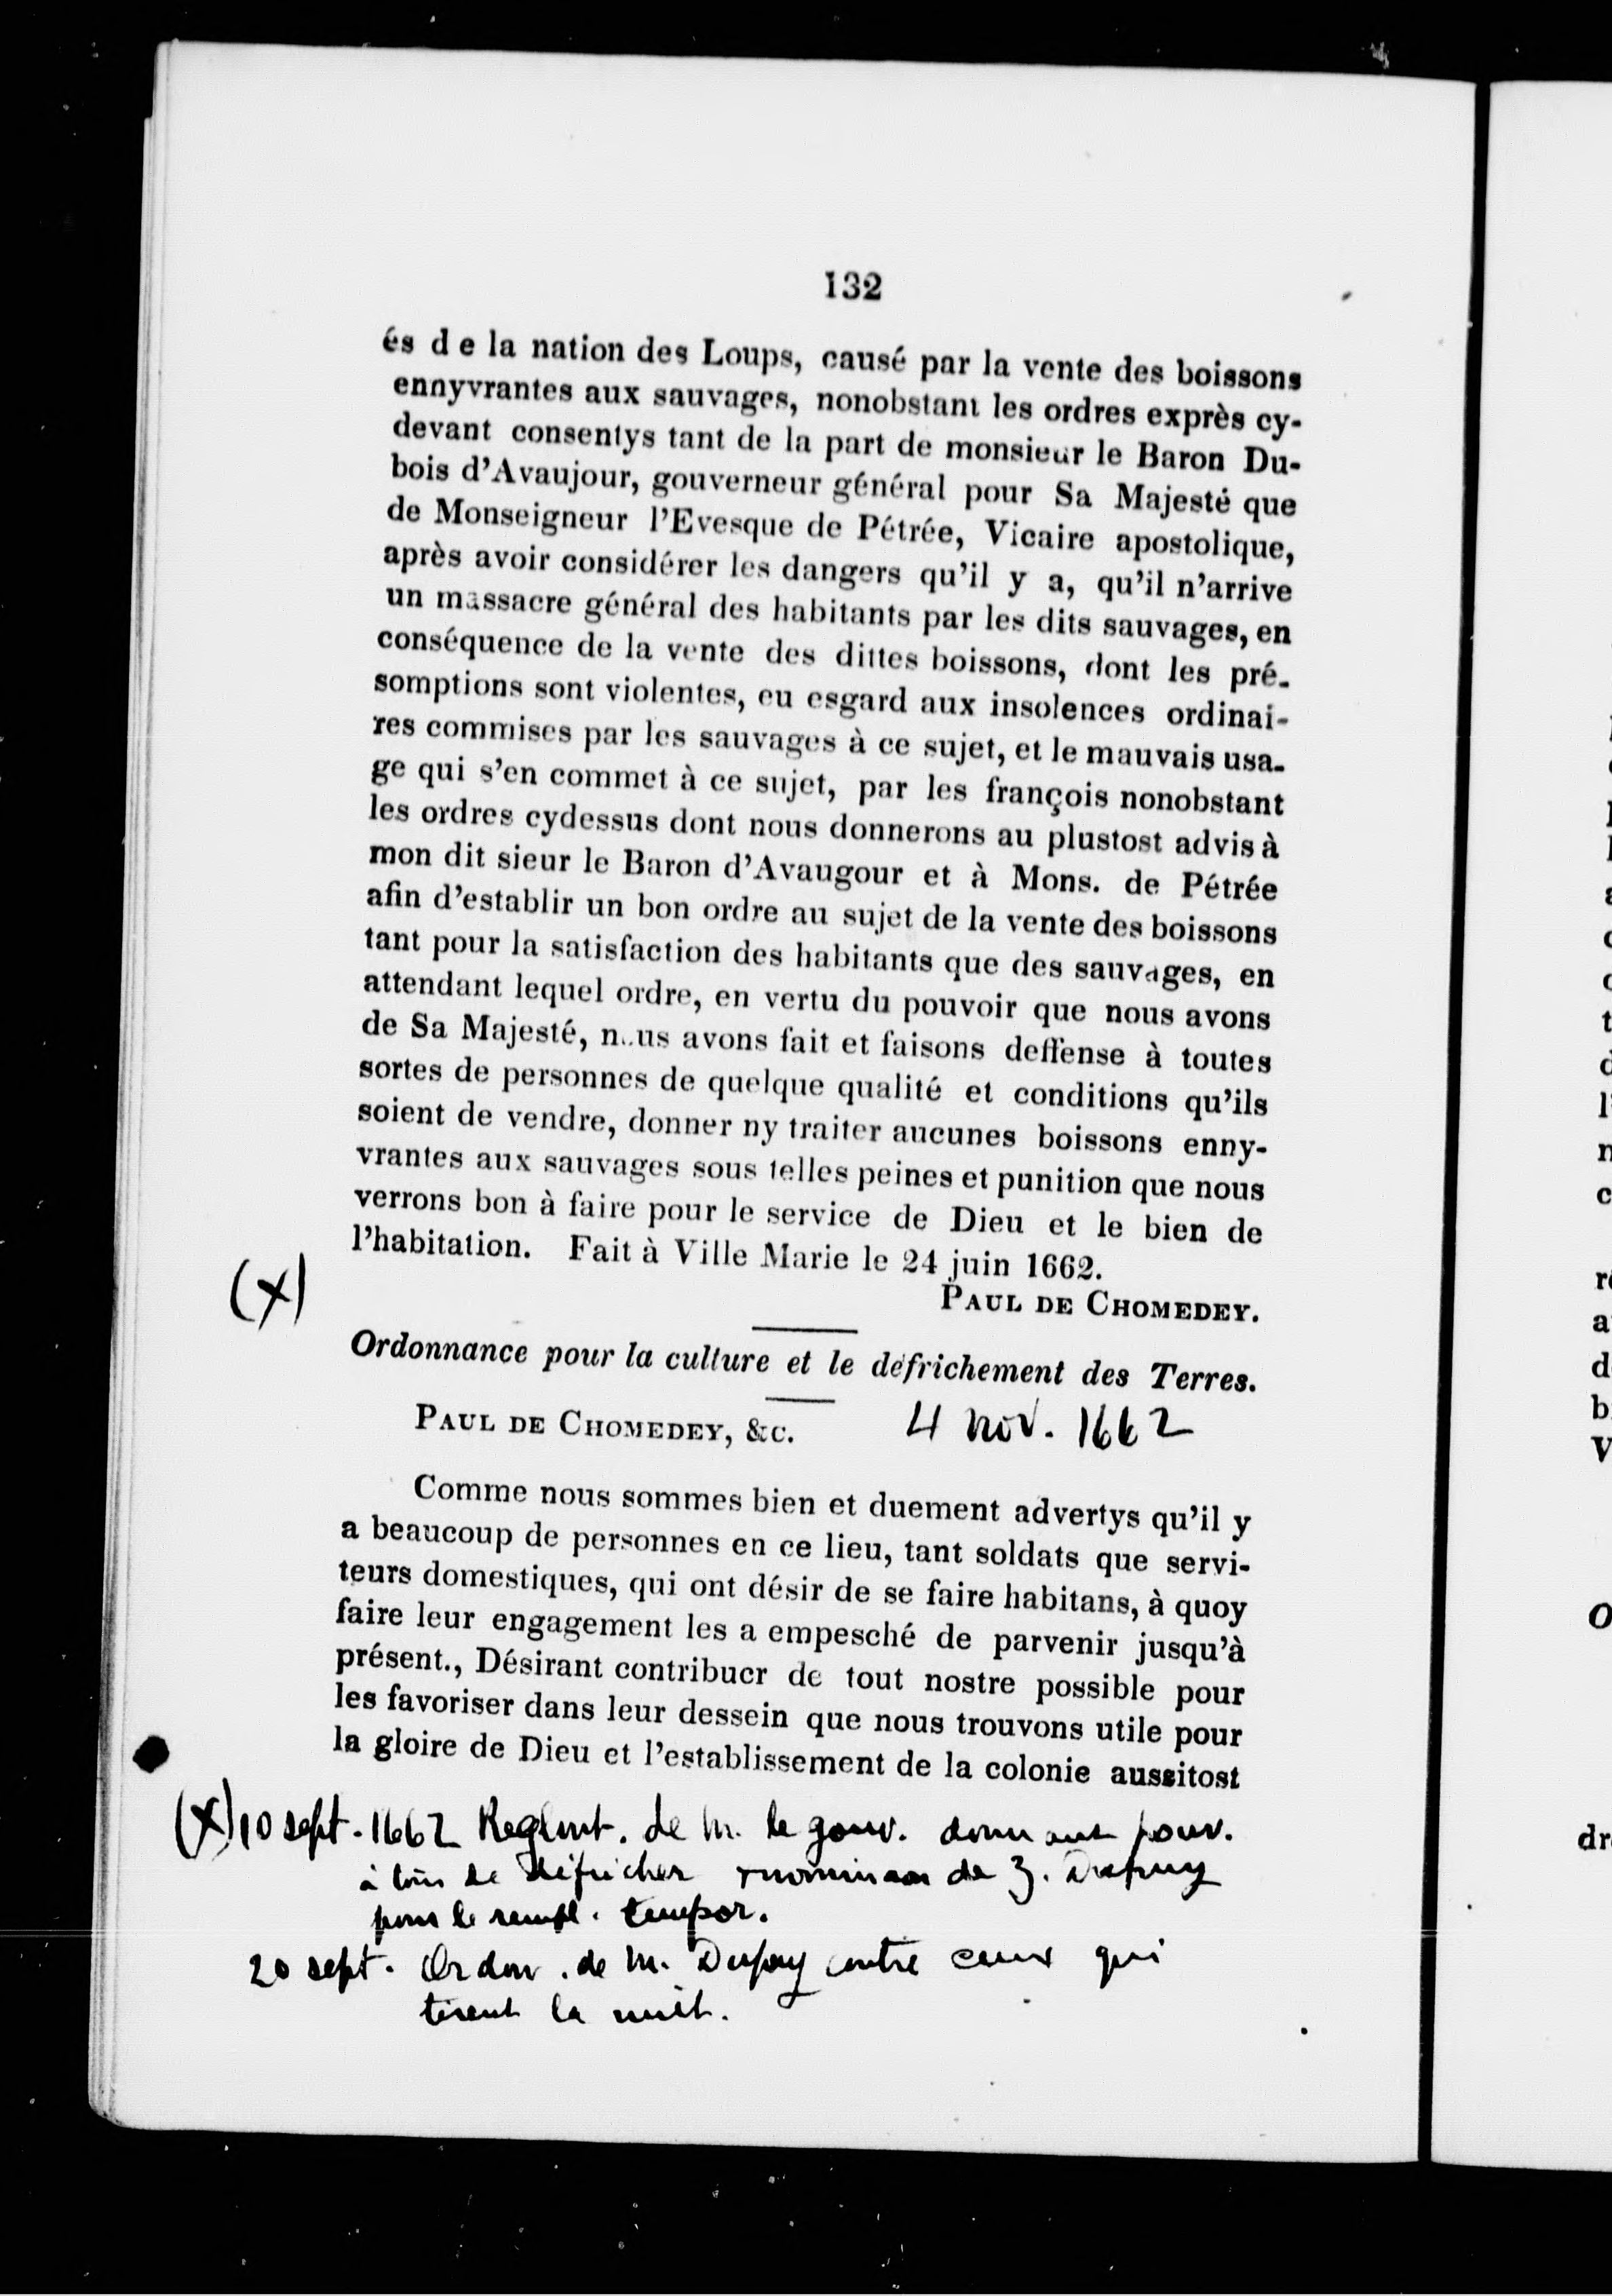 132
és d e la nation des Loups, causé par la vente des boissons
ennyvrantes aux sauvages, nonobstant les ordres exprès cy-
devant consentys tant de la part de monsieur le Baron Du-
bois d'Avaujour, gouverneur général pour Sa Majesté que
de Monseigneur l'Evesque de Pétrée, Vicaire apostolique,
après avoir considérer les dangers qu'il y a, qu'il n'arrive
un massacre général des habitants par les dits sauvages, en
conséquence de la vente des dittes boissons, dont les pré-
somptions sont violentes, eu esgard aux insolences ordinai-
res commises par les sauvages à ce sujet, et le mauvais usa-
ge qui s'en commet à ce sujet, par les françois nonobstant
les ordres cydessus dont nous donnerons au plustost advis à
mon dit sieur le Baron d'Avaugour et à Mons. de Pétrée
afin d'establir un bon ordre au sujet de la vente des boissons
tant pour la satisfaction des habitants que des sauvages, en
attendant lequel ordre, en vertu du pouvoir que nous avons
de Sa Majesté, n..us avons fait et faisons deffense à toutes
sortes de personnes de quelque qualité et conditions qu'ils
soient de vendre, donner ny traiter aucunes boissons enny-
vrantes aux sauvages sous telles peines et punition que nous
verrons bon à faire pour le service de Dieu et le bien de
l'habitation. Fait à Ville Marie le 24 juin 1662.
(X)
PAUL DE CHOMEDEY.
Ordonnance pour la culture et le défrichement des Terres.
PAUL DE CHOMEDEY, &c. 4 nov. 1662
Comme nous sommes bien et duement advertys qu'il y
a beaucoup de personnes en ce lieu, tant soldats que servi-
teurs domestiques, qui ont désir de se faire habitans, à quoy
faire leur engagement les a empesché de parvenir jusqu'à
présent., Désirant contribuer de tout nostre possible pour
les favoriser dans leur dessein que nous trouvons utile pour
la gloire de Dieu et l'establissement de la colonie aussitost
(X) 10 sept. 1662 Reglmt. de M. le gouv. donnant pouv.
à tous de défricher de Z. Dupuy
pour le rempl. tempor.
20 sept. Ordon. de M. Dupuy contre ceux qui
tirent la nuit.